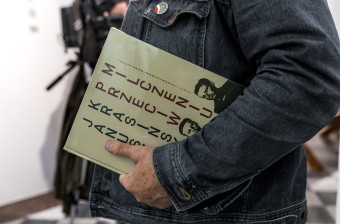 MILCZENIU
PRZECIW
KRASIŃS
JANUS